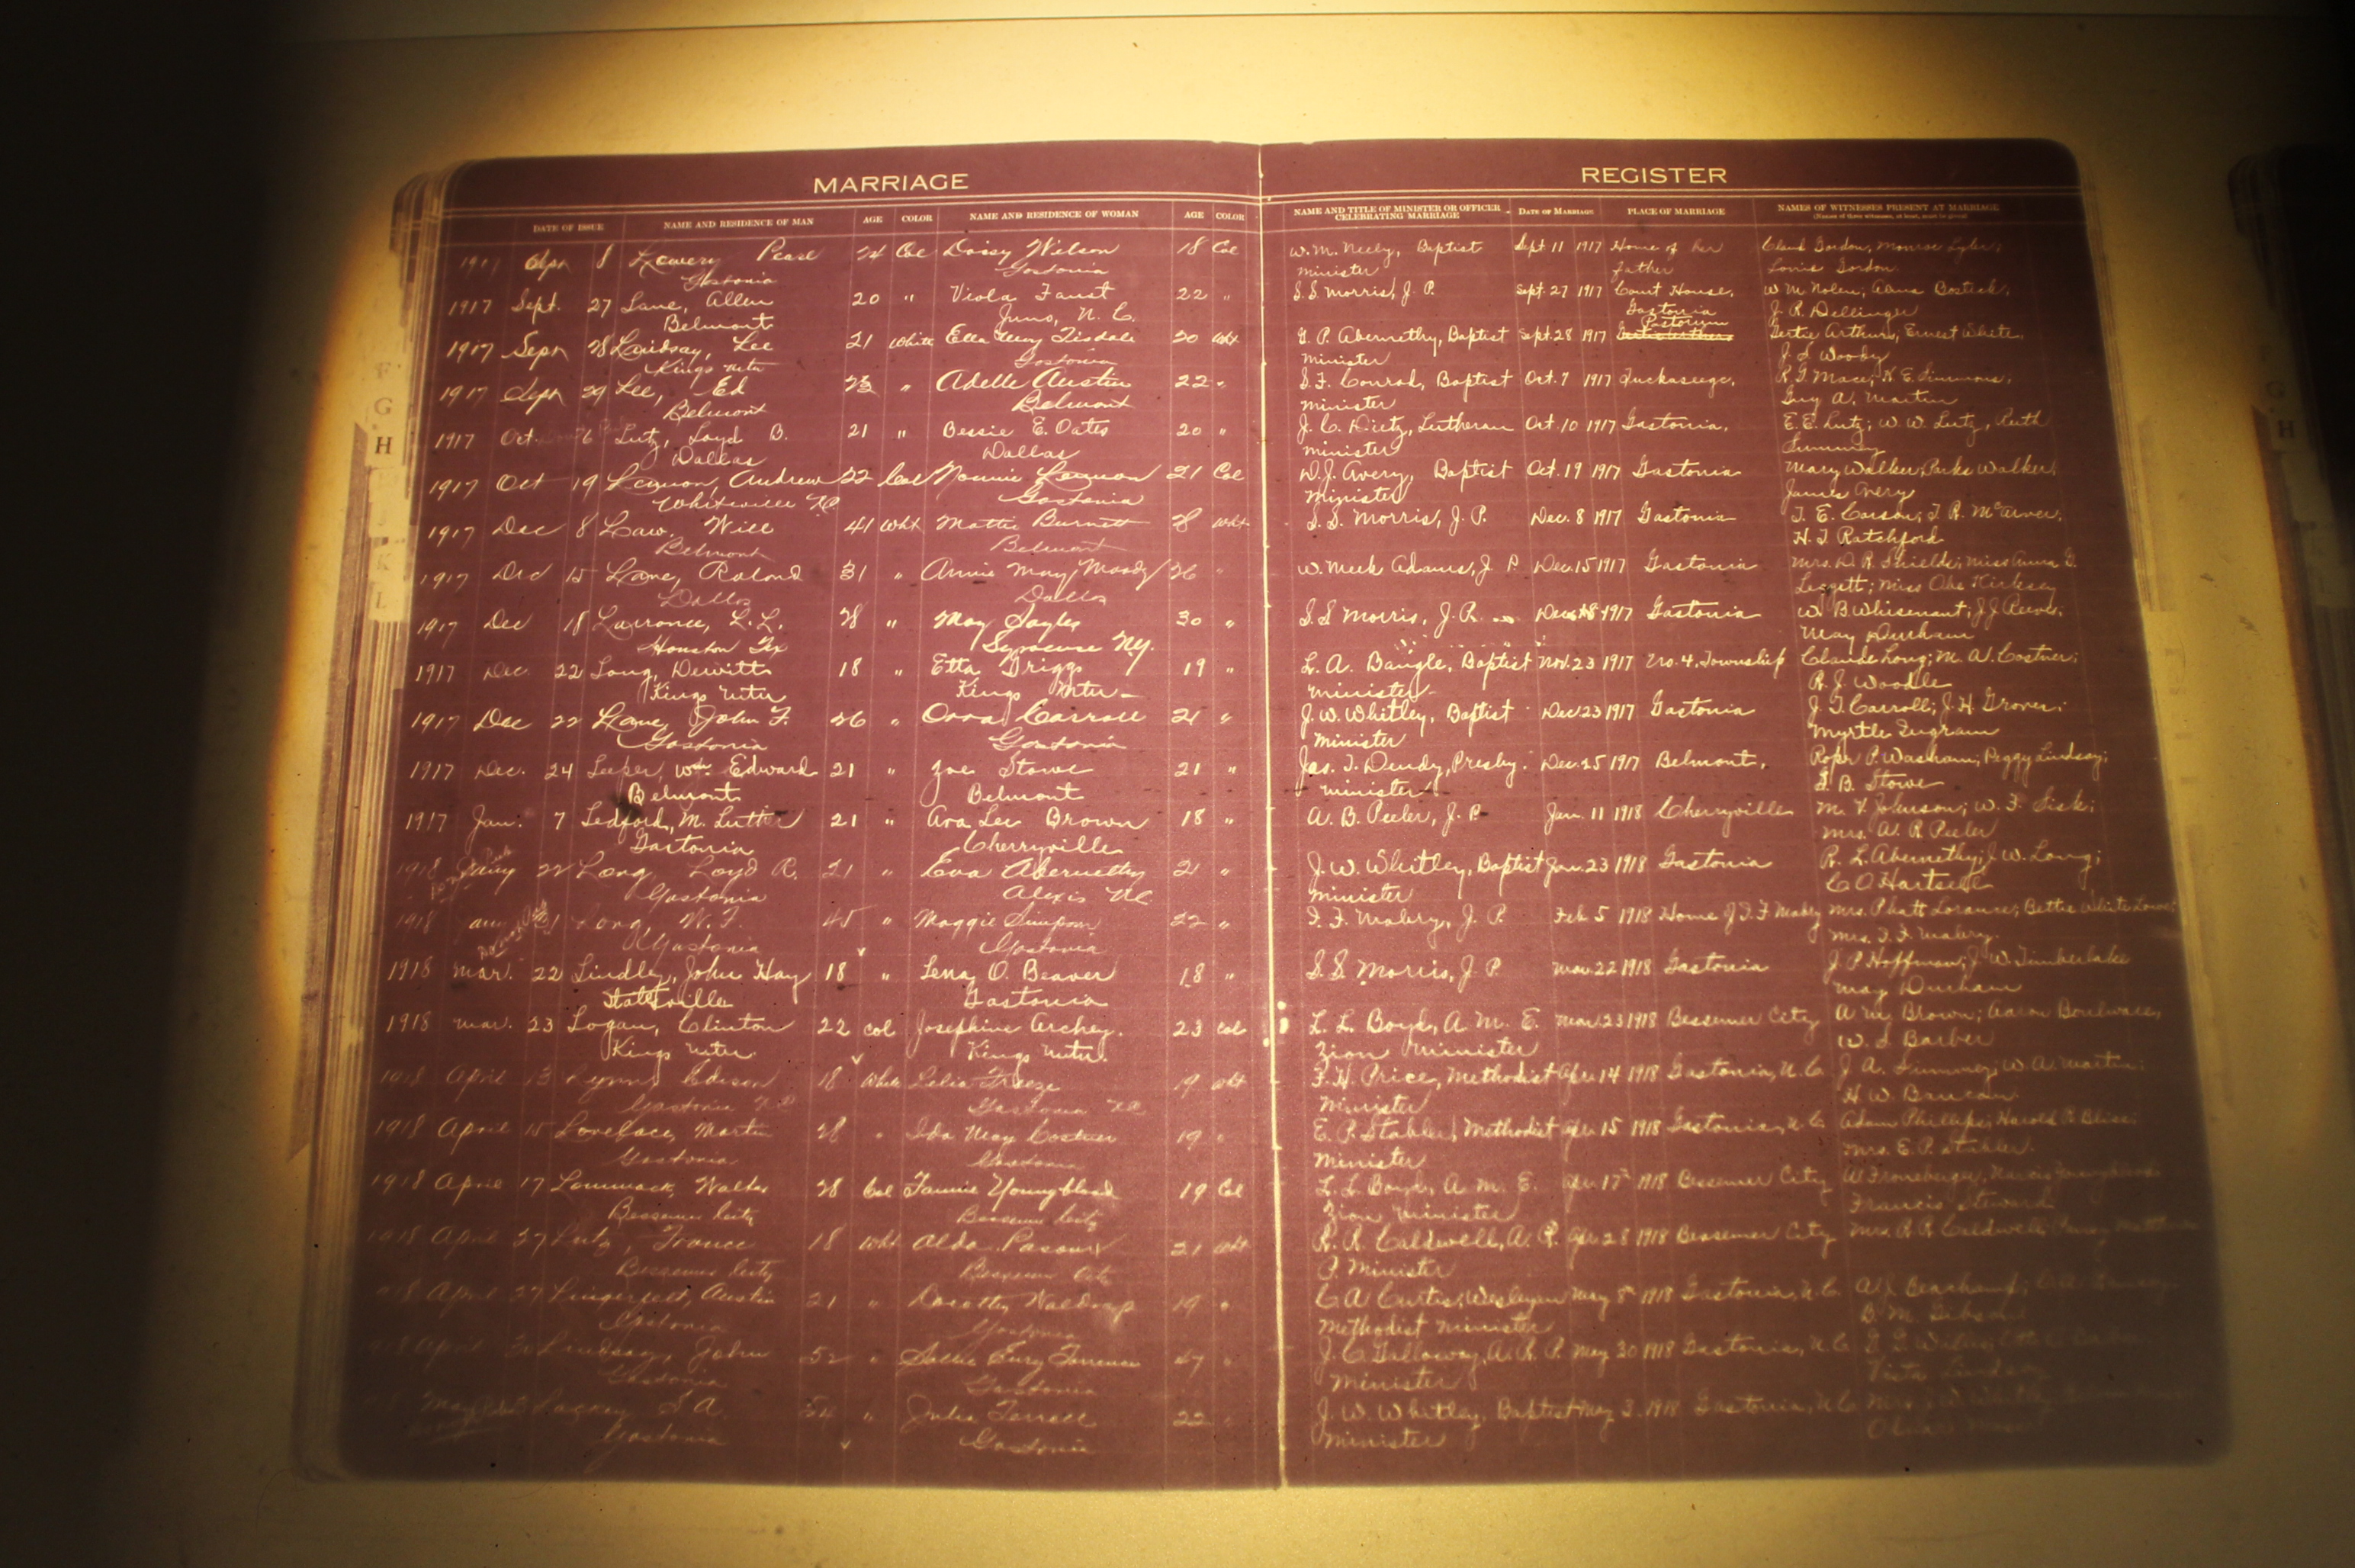 MARRIAGE REGISTER
DATE OF ISSUE NAME AND RESIDENCE OF MAN AGE COLOR NAME AND RESIDENCE OF WOMAN AGE COLOR NAME AND TITLE OF MINISTER OR OFFICER CELEBRATING MARRIAGE DATE OF MARRIAGE PLACE OF MARRIAGE NAMES OF WITNESSES PRESENT AT MARRIAGE
(Names of three witnesses, at least, must be given)
1917 8 Lowery Pearl 24 Col Daisy Wilson 18 Col W. M. Neely, Baptist Sept 11 1917 Home of her Claud Gordon, Monroe
Gastonia Gastonia minister father Louis Gordon
1917 Sept. 27 Lane, Allen 20 " Viola Faust 22 " S. S. Morris, J. P. Sept. 27 1917 Court House, W M Nolen, Bostick,
Belmont Juno, N. C. Gastonia J. R. Dellinger
1917 Sept 28 Lindsay, Lee 21 White Ella May Tisdale 20 Wht G. P. Abernethy, Baptist Sept. 28 1917 Pastorium Gertie Arthurs, Ernest White,
Kings Mtn Gastonia minister J. S. Woody
1917 Sept 29 Lee, Ed 23 " Adelle Austin 22 " S. F. Conrad, Baptist Oct. 7 1917 Tuckaseege, R. G. Mace, K. E. Simmons,
Belmont Belmont minister Guy A. Martin
1917 Oct. 6 Lutz, Loyd B. 21 " Bessie E. Oates 20 " J. C. Dietz, Lutheran Oct. 10 1917 Gastonia, E. E. Lutz; W. W. Lutz, Ruth
Dallas Dallas minister Summey
1917 Oct 19 Lequon, Andrew 22 Col Nannie Lequon 21 Col D. J. Avery, Baptist Oct. 19 1917 Gastonia Mary Walker, Parks Walker,
Whiteville NC Gastonia minister James Avery
1917 Dec 8 Law, Will 41 Wht Mattie Burnett 28 Wht S. S. Morris, J. P. Dec. 8 1917 Gastonia T. E. Carson, T. R. McCarver,
Belmont Belmont H. T. Ratchford
1917 Dec 15 Lane, Roland 31 " Annie May Moody 26 " W. Meek Adams, J P Dec. 15 1917 Gastonia Mrs. D. R. Shields, Miss Anna G.
Dallas Dallas Leggett; Miss Kirksey
1917 Dec 18 Lawrance, L. L. 28 " May Sayles 30 " S. S Morris, J. P. Dec. 18 1917 Gastonia W. B. Whisenant; J J Reeves,
Houston Tex Syracuse NY. May Durham
1917 Dec. 22 Long, Dewitt 18 " Etta Griggs 19 " L. A. Bangle, Baptist Nov. 23 1917 No. 4. Township Claude Long; M. A. Costner;
Kings Mtn Kings Mtn minister R. J. Woodle
1917 Dec 22 Lane, John F. 26 " Carroll 21 " J. W. Whitley, Baptist Dec 23 1917 Gastonia J. T. Carroll; J. H. Grover;
Gastonia Gastonia minister Myrtle Ingram
1917 Dec. 24 Leeper, Wm. Edward 21 " Zoe Stowe 21 " Jas. T. Dendy, Presby. Dec. 25 1917 Belmont, Roper P. Washam; Peggy Lindsay;
Belmont Belmont minister S. B. Stowe
1917 Jan. 7 Ledford, M. Luther 21 " Ava Lee Brown 18 " A. B. Peeler, J. P. Jan. 11 1918 Cherryville M. F. Johnson; W. F. Sisk;
Gastonia Cherryville Mrs. A. R Peeler
1918 22 Long, Loyd R. 21 " Eva Abernethy 21 " J. W. Whitley, Baptist Jan. 23 1918 Gastonia R. L. Abernethy; J W. Long;
Gastonia Alexis NC minister C O Hartsell
1918 Long, W. F. 45 " Maggie Simpson 22 " T. F. Mabry, J. P. Feb 5 1918 Home of T. F Mabry Mrs. Phatt Lorance; Bettie White
Gastonia Gastonia Mrs. T. F. Mabry.
1918 Mar. 22 Lindley, John Hay 18 " Lena O. Beaver 18 " S. S. Morris, J. P. Mar. 22 1918 Gastonia J. P. Hoffman; J. W. Timberlake
Statesville Gastonia May Durham
1918 Mar. 23 Logan, Clinton 22 Col Josephine Archey. 23 Col L. L. Boyd, A. M. E. Mar. 23 1918 Bessemer City A M. Brown; Aaron Boulware,
Kings Mtn. Kings Mtn. Zion Minister W. S Barber
1918 April 13 Lynn, Edison 18 White Lelia Freeze 19 Wht F. H. Price, Methodist Apr. 14 1918 Gastonia, N. C J. A. Summey; W. A. Martin;
Gastonia NC Gastonia NC Minister H W.
1918 April 15 Lovelace, Martin 28 " Ida May Costner 19 " E. P. Stabler, Methodist Apr 15 1918 Gastonia, N. C Adam Phillips; Harold P. Bliss;
Gastonia Gastonia Minister Mrs. E. P. Stabler.
1918 April 17 Lommack, Walter 28 Col Fannie Youngblood 19 Col L. L. Boyd, A. M. E. Apr. 17 1918 Bessemer City W Froneberger,
Bessemer City Bessemer City Zion Minister Francis Steward
1918 April 27 Lutz, France 18 Wht Alda Pasour 21 Wht R. R. Caldwell, A. R. Apr. 28 1918 Bessemer City Mrs. R. R. Caldwell,
Bessemer City Bessemer City P. Minister
April 27 Lingerfelt, Austin 21 " Dorothy Waldrop 19 " C A Curtis, Wesleyan May 5 1918 Gastonia, N. C
Gastonia Gastonia Methodist Minister B. M. Gibson
April 30 Lindsay, John 52 " Sallie Torrence 47 " J. C. Galloway, A. R. P. May 30 1918 Gastonia, N. C
Gastonia Gastonia Minister
May Lackey, S A. " Julia Terrell 22 " J. W. Whitley, Baptist May 3. 1918 Gastonia, N. C
Gastonia Gastonia Minister
F
G
H
K
L